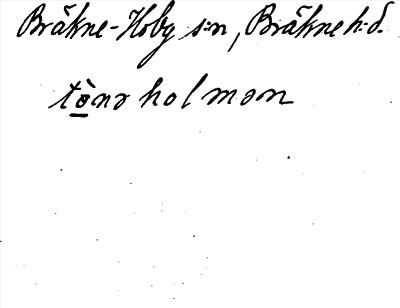 Bräkne-Hoby s:n, Bräkne h:d.
tò̱nəholmən